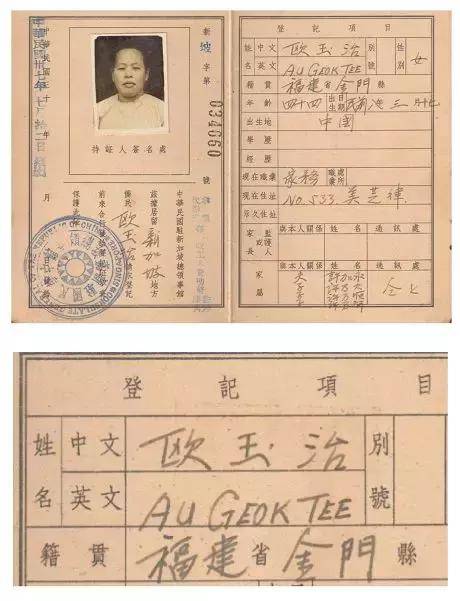 新坡字第 034660 號
持証人簽名處
中華民國駐新加坡總領事館
茲據居留新加坡地方
僑民歐玉治請求登記
登記項目
姓名 中文 歐玉治 別號 性別 女
英文 AU GEOK TEE
籍貫 福建省金門縣
年齡 四十四 出生日期 民前八年三月十七
出生地 中國
學歷
經歷
現在職業 家務 職業處所
現在住址 No. 533 美芝律
永久住址
家長 監或護人 與本人關係 姓名 通訊處
家屬 與本人關係 姓名 通訊處
夫 許加
子
子
登記項目
姓名 中文 歐玉治 別號
英文 AU GEOK TEE
籍貫 福建省金門縣